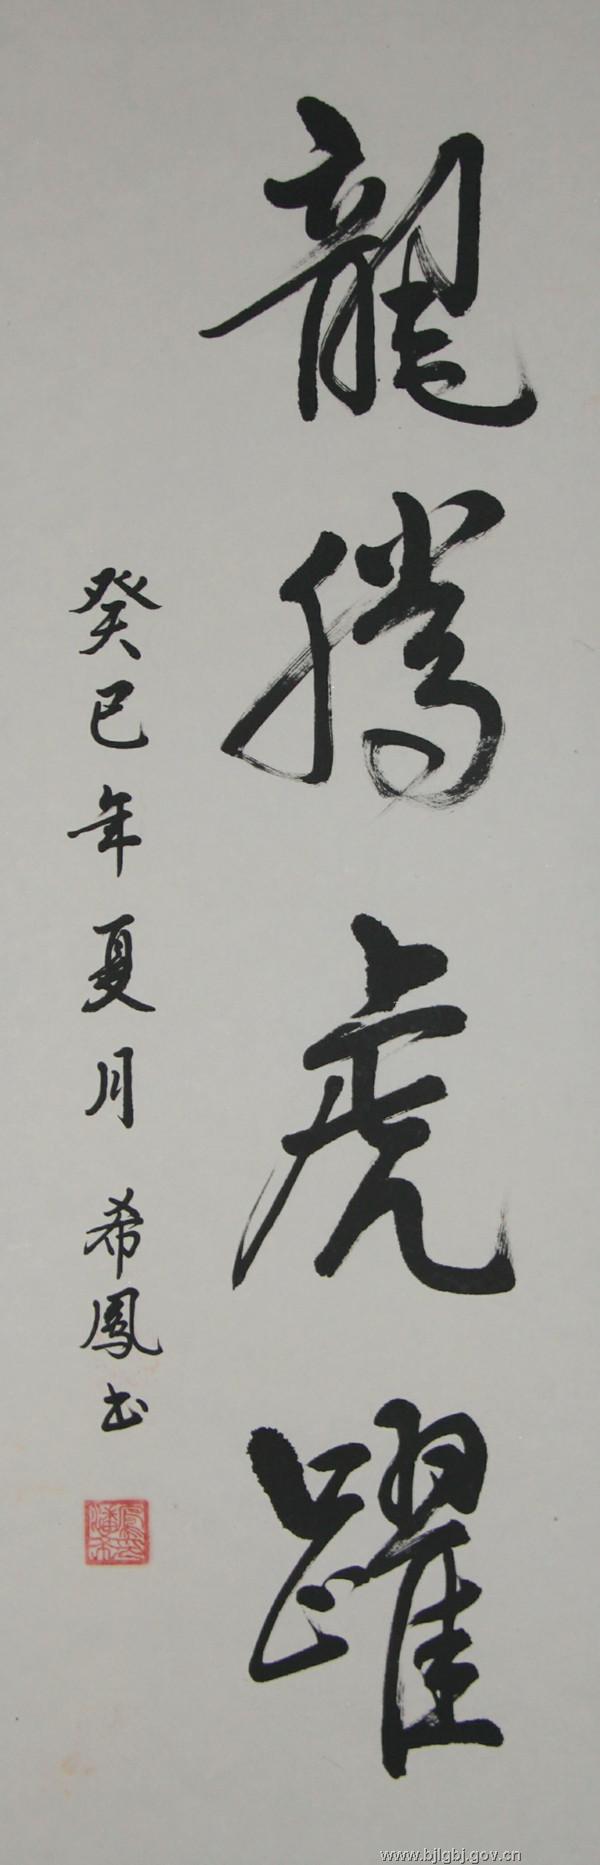 龍騰虎躍
癸巳年夏月 希鳳书
www.bjlgbj.gov.cn